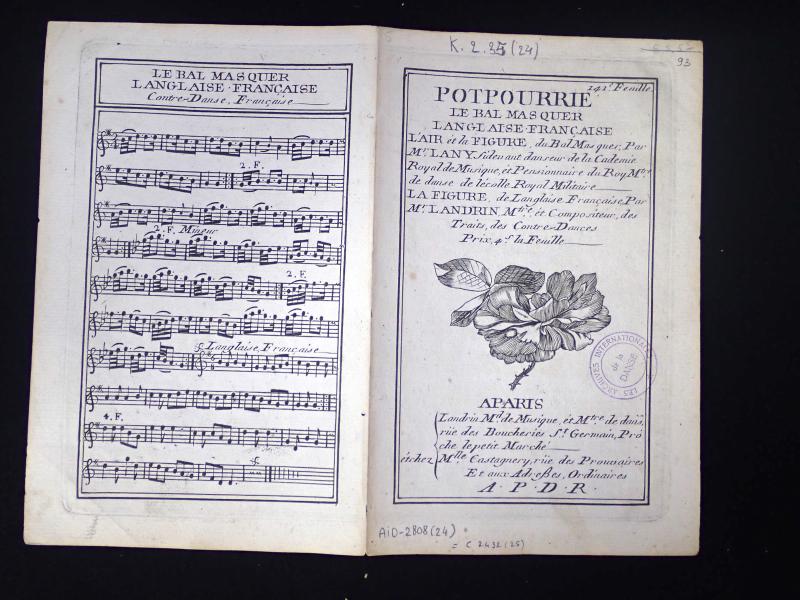 LE BAL MASQUER
LANGLAISE·FRANÇAISE
Contre-Danse, Française
2. F.
2. F. Mineur
2. F.
Langlaise, Française
4. F.
K. 2. 35 (24)
93
141.e Feuille
POTPOURRIE
LE BAL MASQUER
LANGLAISE·FRANÇAISE
L'AIR et la FIGURE, du Bal Masquer, Par
Mr. LANY. Sidevant danseur de la Cademie
Royal de Musique, et Pensionnaire du Roy Mtre
de danse de lécolle Royal Militaire
LA FIGURE, de Langlaise Française, Par
Mr. LANDRIN, Mtre, et Compositeur, des
Traits, des Contre-Dances
Prix, 4s. la Feuille
LES ARCHIVES INTERNATIONALES
de la
DANSE
APARIS
Landrin Md. de Musique, et Mtre de dans,
rüe des Boucheries St. Germain, Pro
che le petit Marché
et chez Mlle Castagnery, rüe des Prouvaires
Et aux Adreßes, Ordinaires
A·P·D·R·
AID-2808 (24)
= C 2432 (25)